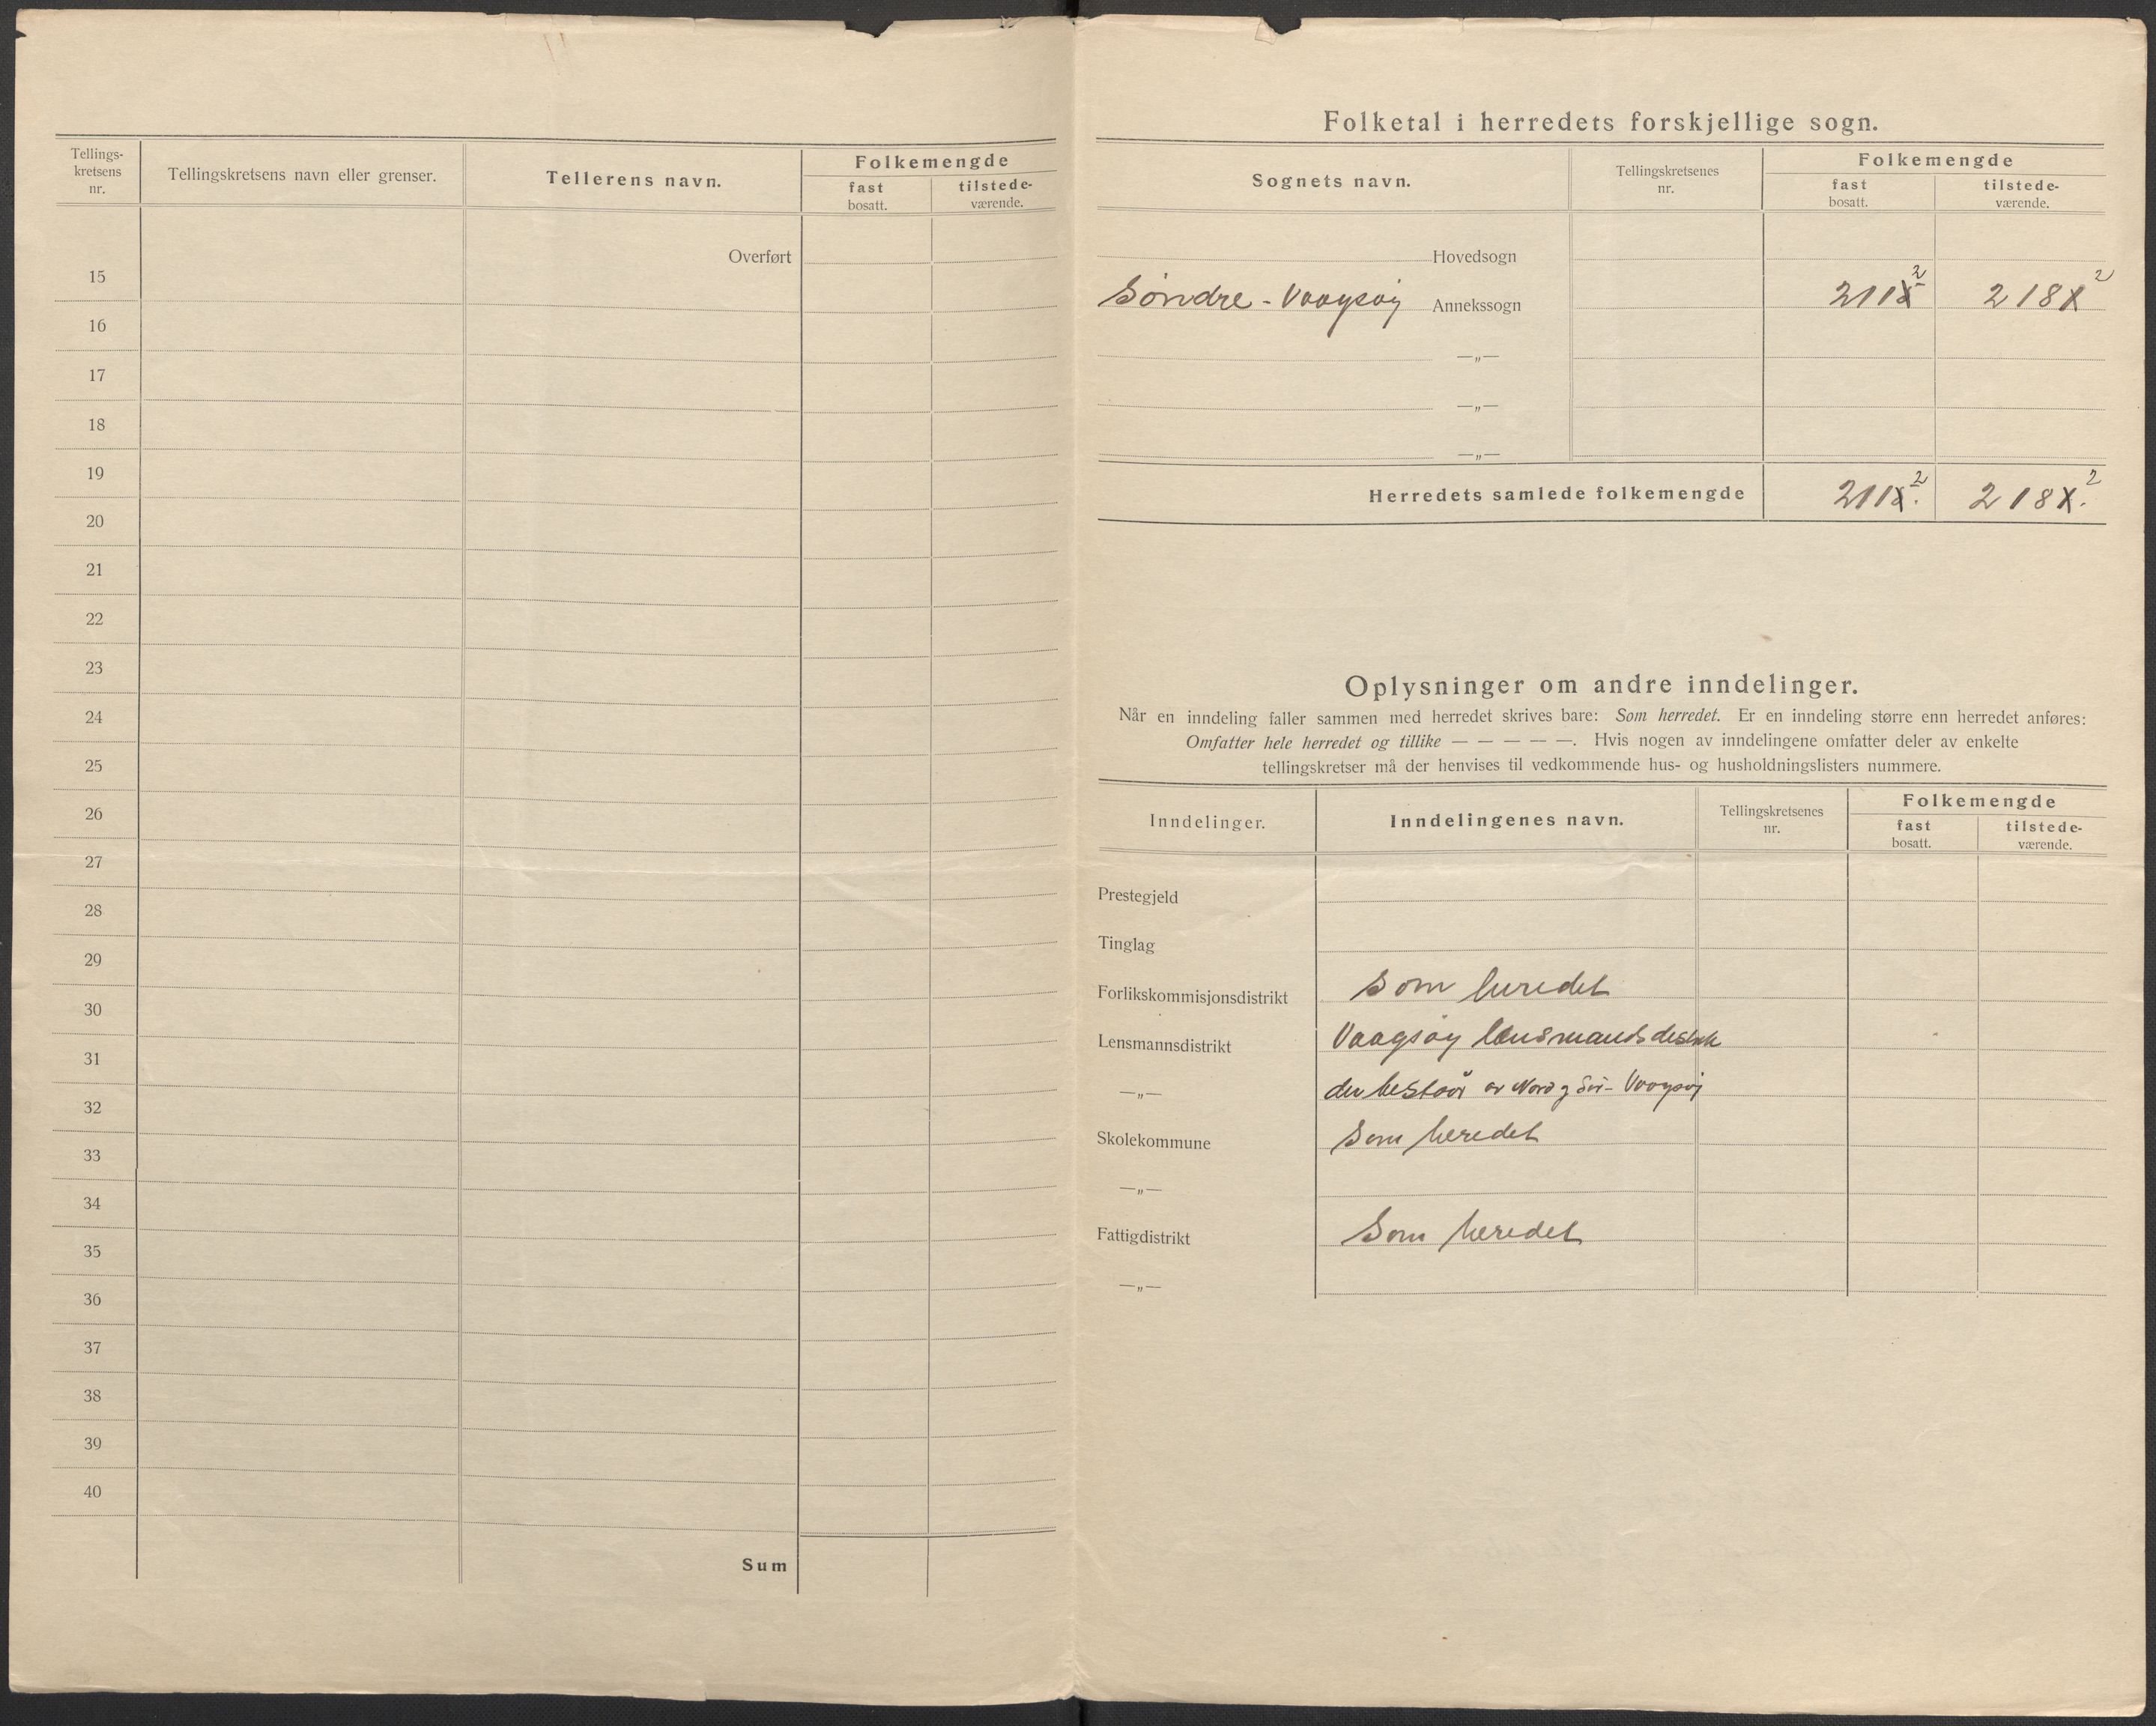 Tellings-
kretsens
nr.
Tellingskretsens navn eller grenser.
Tellerens navn.
Folkemengde
fast
bosatt.
tilstede-
værende.
Overført
15
16
17
18
19
20
21
22
23
24
25
26
27
28
29
30
31
32
33
34
35
36
37
38
39
40
Sum
Folketal i herredets forskjellige sogn.
Sognets navn.
Tellingskretsenes
nr.
Folkemengde
fast
bosatt.
tilstede-
værende.
Hovedsogn
Söndre - Vaagsöy Annekssogn 2112 2182
—„—
—„—
—„—
Herredets samlede folkemengde 2112. 2182.
Oplysninger om andre inndelinger.
Når en inndeling faller sammen med herredet skrives bare: Som herredet. Er en inndeling større enn herredet anføres:
Omfatter hele herredet og tillike — — — — —. Hvis nogen av inndelingene omfatter deler av enkelte
tellingskretser må der henvises til vedkommende hus- og husholdningslisters nummere.
Inndelinger.
Inndelingenes navn.
Tellingskretsenes
nr.
Folkemengde
fast
bosatt.
tilstede-
værende.
Prestegjeld
Tinglag
Forlikskommisjonsdistrikt Som heredet
Lensmannsdistrikt Vaagsöy lensmands
—„— der bestaar av Nord og Sör - Vaagsöy
Skolekommune Som heredet
—„—
Fattigdistrikt Som heredet
—„—